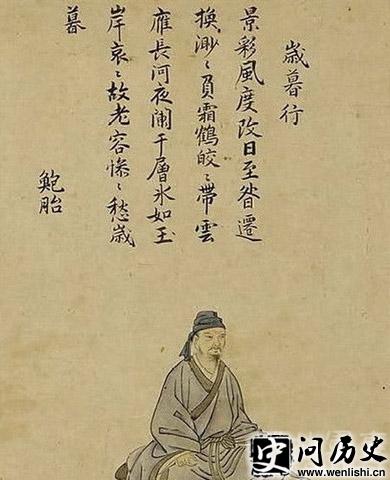 歳暮行
景彩風度改日至晷遷
換渺〻負霜鶴皎〻帶雲
雁長河夜闌干層氷如玉
岸哀〻故老容惨〻愁歳
暮
鮑胎
史问历史
www.wenlishi.cn